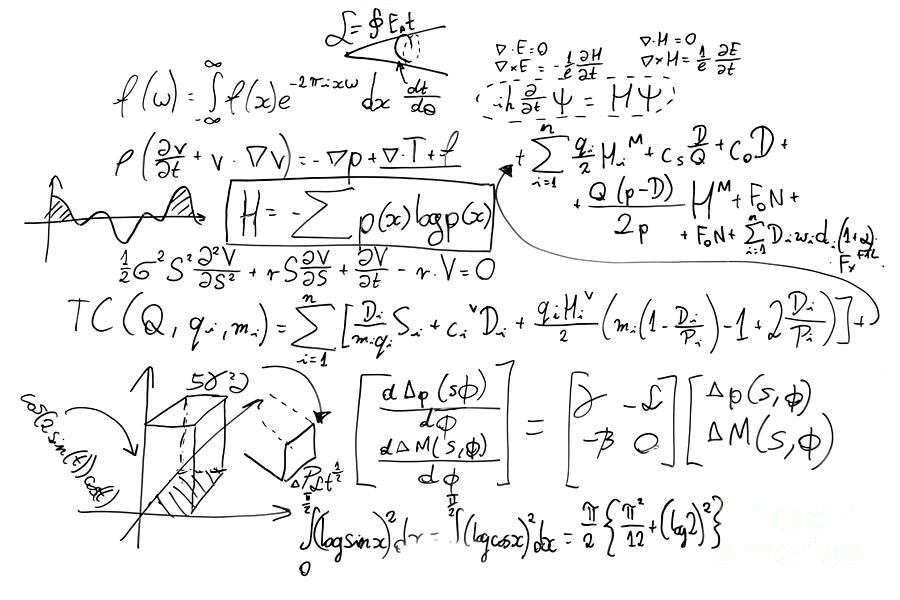 ℒ = ∮ E, t
∇·E=0    ∇·H=0
∇×E = -1/c ∂H/∂t    ∇×H = 1/c ∂E/∂t
f(ω) = ∫_{-∞}^{∞} f(x)e^{-2πixω} dx    dt/dθ
iħ ∂/∂t Ψ = HΨ
ρ(∂v/∂t + v·∇v) = -∇p + ∇·T + f
+ ∑_{i=1}^{n} q_i/2 H_i^M + c_s D/Q + c_0 D +
+ Q(p-D)/2p H^M + F_0N +
+ F_0N + ∑_{i=1}^{n} D_i w_i d_i (1+α)
H = -∑ p(x) log p(x)
1/2 σ² S² ∂²V/∂S² + rS ∂V/∂S + ∂V/∂t - r·V = 0
TC(Q, q_i, m_i) = ∑_{i=1}^{n} [D_i/(m_i q_i) S_i + c_i^v D_i + q_i H_i^v/2 (m_i(1 - D_i/P_i) - 1 + 2 D_i/P_i)] +
cos(2 sin(t)) cos t
[dΔp(s,ϕ)/dϕ  dΔM(s,ϕ)/dϕ] = [γ  -ℒ  -β  0] [Δp(s,ϕ)  ΔM(s,ϕ)]
∫_0^{π/2} (log sin x)² dx = ∫^{π/2} (log cos x)² dx = π/2 {π²/12 + (log 2)²}